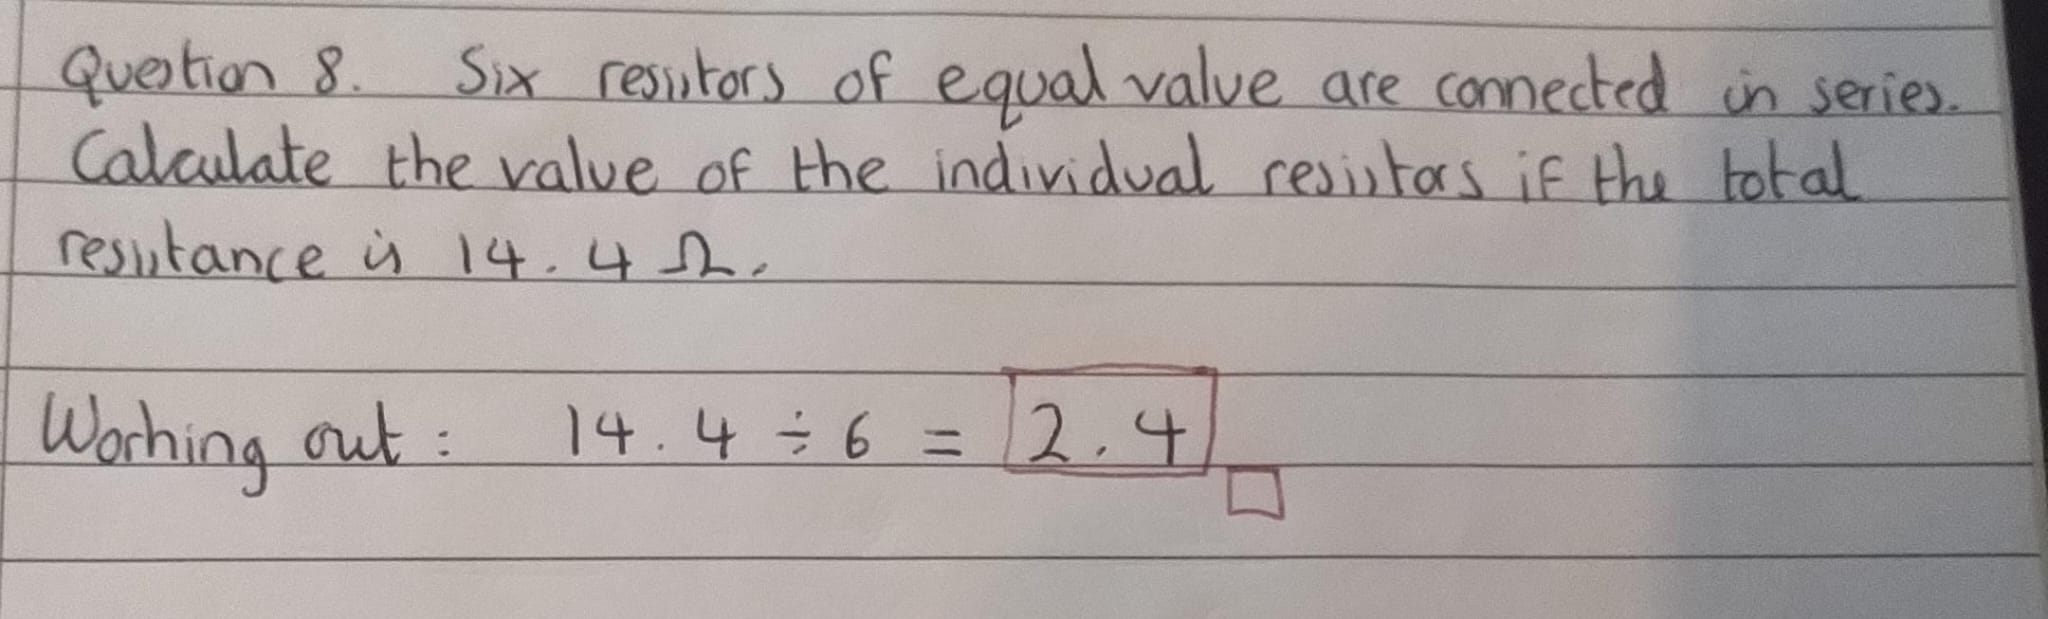 Question 8. Six resistors of equal value are connected in series.
Calculate the value of the individual resistors if the total
resistance is 14.4 Ω.
Working out: 14.4 ÷ 6 = 2.4